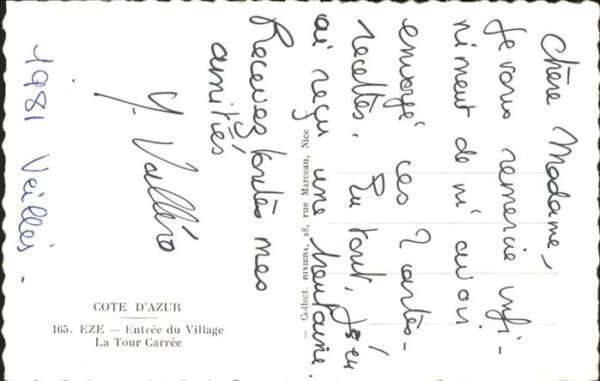 Chère Madame,
Je vous remercie infi-
niment de m'avoir
envoyé ces 2 cartes-
recettes. En tout, j'en
ai reçu une trentaine.
Recevez toutes mes
amitiés
Y. Valléro
1981 Veilles.
COTE D'AZUR
165. EZE — Entrée du Village
La Tour Carrée
— Collect. RIVIERA, 28, rue Marceau, Nice